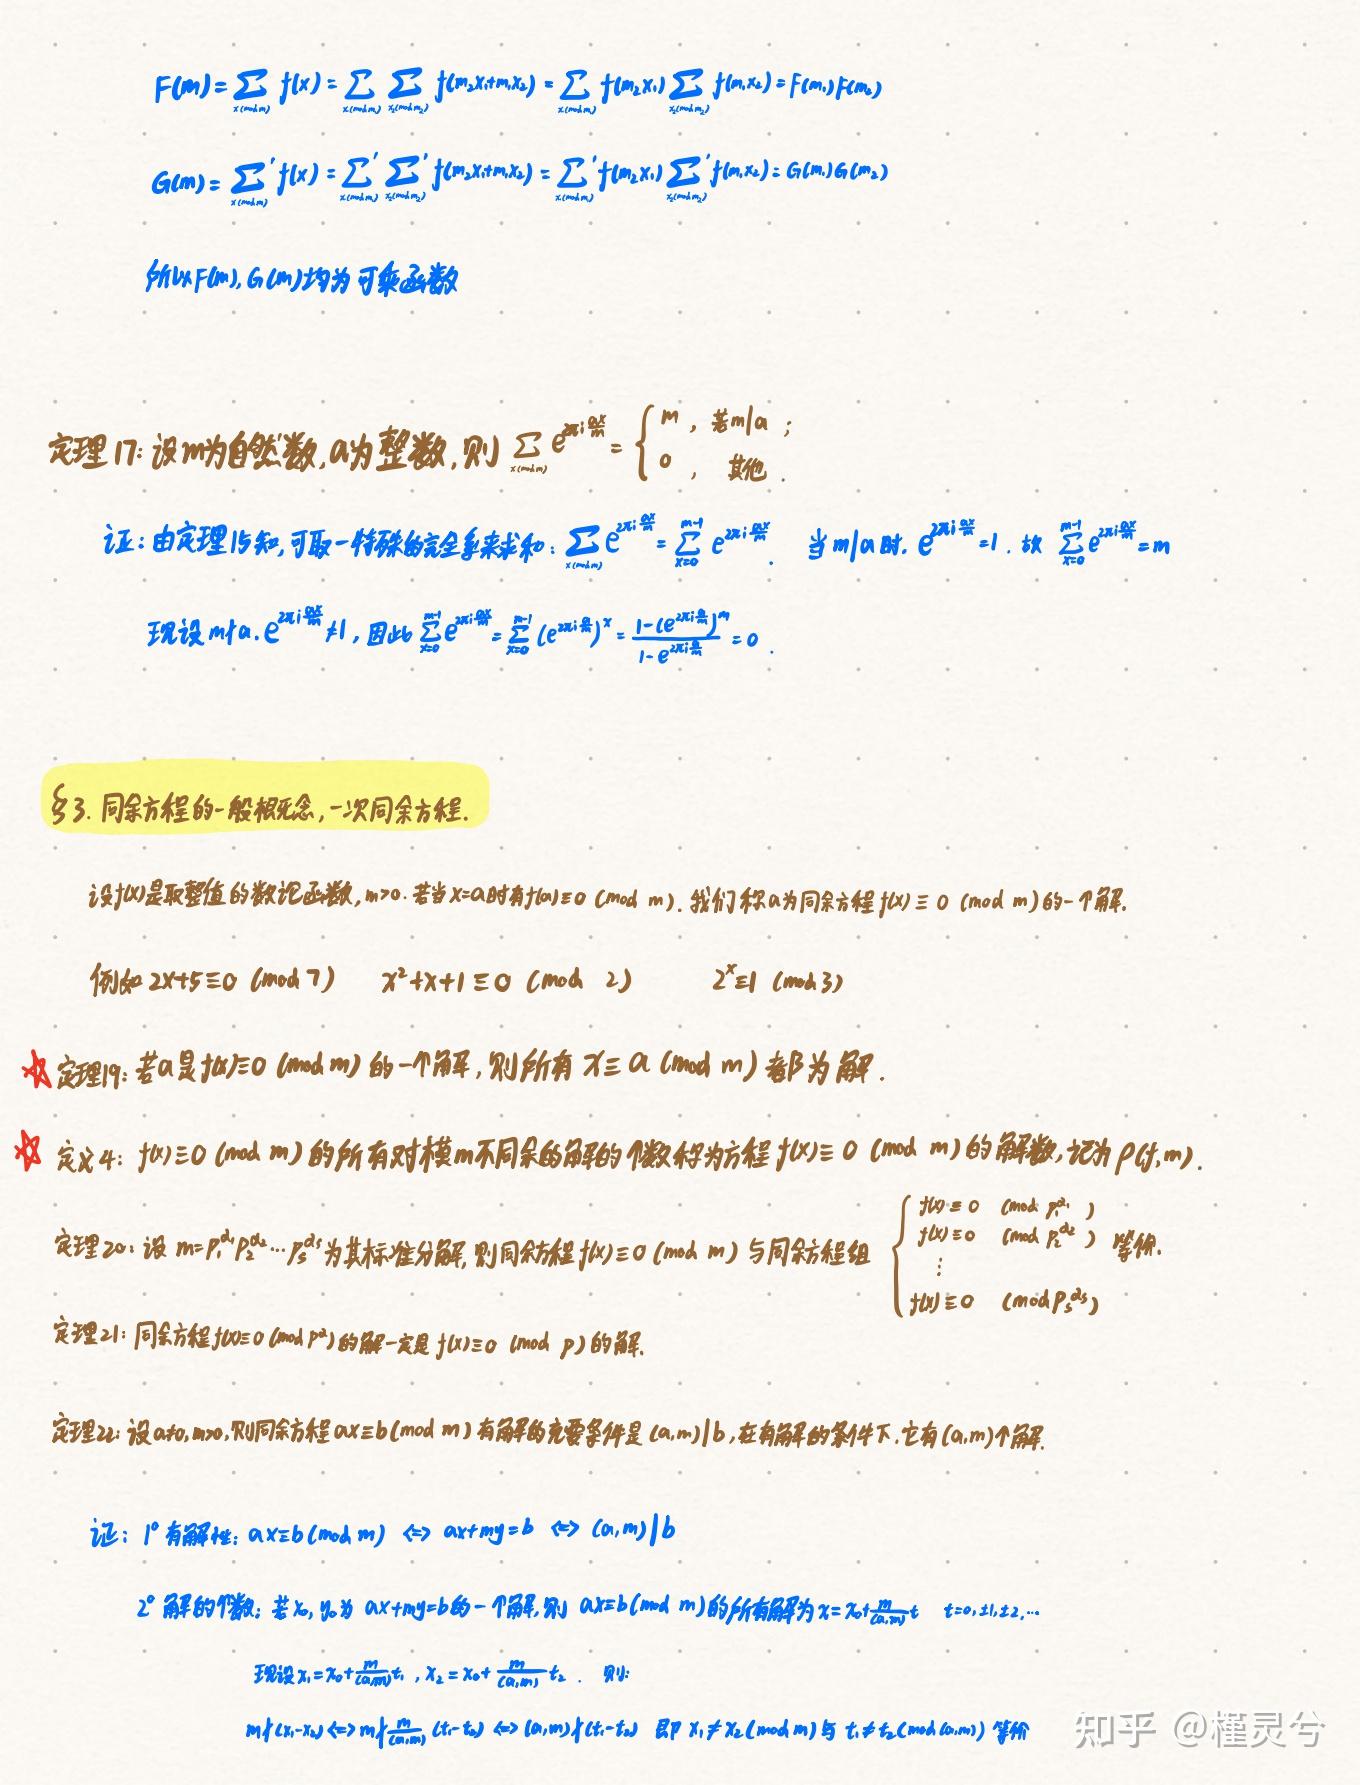 F(m)=∑_{x(mod m)} f(x)=∑_{x₁(mod m₁)} ∑_{x₂(mod m₂)} f(m₂x₁+m₁x₂)=∑_{x₁(mod m₁)} f(m₂x₁)∑_{x₂(mod m₂)} f(m₁x₂)=F(m₁)F(m₂)
G(m)=∑'_{x(mod m)} f(x)=∑'_{x₁(mod m₁)} ∑'_{x₂(mod m₂)} f(m₂x₁+m₁x₂)=∑'_{x₁(mod m₁)} f(m₂x₁)∑'_{x₂(mod m₂)} f(m₁x₂)=G(m₁)G(m₂)
所以F(m), G(m)均为可乘函数
定理17: 设m为自然数, a为整数, 则 ∑_{x(mod m)} e^{2πi ax/m} = { m, 若m|a ; 0, 其他.
证: 由定理15知, 可取一特殊的完全系来求和: ∑_{x(mod m)} e^{2πi ax/m} = ∑_{x=0}^{m-1} e^{2πi ax/m}. 当m|a时, e^{2πi ax/m}=1. 故 ∑_{x=0}^{m-1} e^{2πi ax/m}=m
现设m∤a. e^{2πi a/m}≠1, 因此 ∑_{x=0}^{m-1} e^{2πi ax/m} = ∑_{x=0}^{m-1} (e^{2πi a/m})^x = (1-(e^{2πi a/m})^m)/(1-e^{2πi a/m}) = 0.
§3. 同余方程的一般概念, 一次同余方程.
设f(x)是取整值的数论函数, m>0. 若当x=a时有f(a)≡0 (mod m). 我们称a为同余方程f(x)≡0 (mod m)的一个解.
例如 2x+5≡0 (mod 7) x²+x+1≡0 (mod 2) 2^x≡1 (mod 3)
定理19: 若a是f(x)≡0 (mod m)的一个解, 则所有x≡a (mod m)都为解.
定义4: f(x)≡0 (mod m)的所有对模m不同余的解的个数称为方程f(x)≡0 (mod m)的解数, 记为ρ(f,m).
定理20: 设 m=p₁^{α₁}p₂^{α₂}…p_s^{α_s}为其标准分解, 则同余方程f(x)≡0 (mod m) 与同余方程组 { f(x)≡0 (mod p₁^{α₁}) f(x)≡0 (mod p₂^{α₂}) ⋮ f(x)≡0 (mod p_s^{α_s}) 等价.
定理21: 同余方程f(x)≡0 (mod p^α)的解一定是 f(x)≡0 (mod p)的解.
定理22: 设a≠0, m>0, 则同余方程ax≡b(mod m)有解的充要条件是 (a,m)|b, 在有解的条件下, 它有(a,m)个解.
证: 1° 有解性: ax≡b(mod m) ⟺ ax+my=b ⟺ (a,m)|b
2° 解的个数: 若x₀, y₀为 ax+my=b的一个解, 则 ax≡b(mod m)的所有解为x=x₀+m/(a,m) t t=0,±1,±2,…
现设x₁=x₀+m/(a,m) t₁, x₂=x₀+m/(a,m) t₂. 则:
m∤(x₁-x₂)⟺m∤m/(a,m) (t₁-t₂) ⟺(a,m)∤(t₁-t₂) 即 x₁≢x₂(mod m)与 t₁≢t₂(mod(a,m))等价
知乎 @槿灵兮